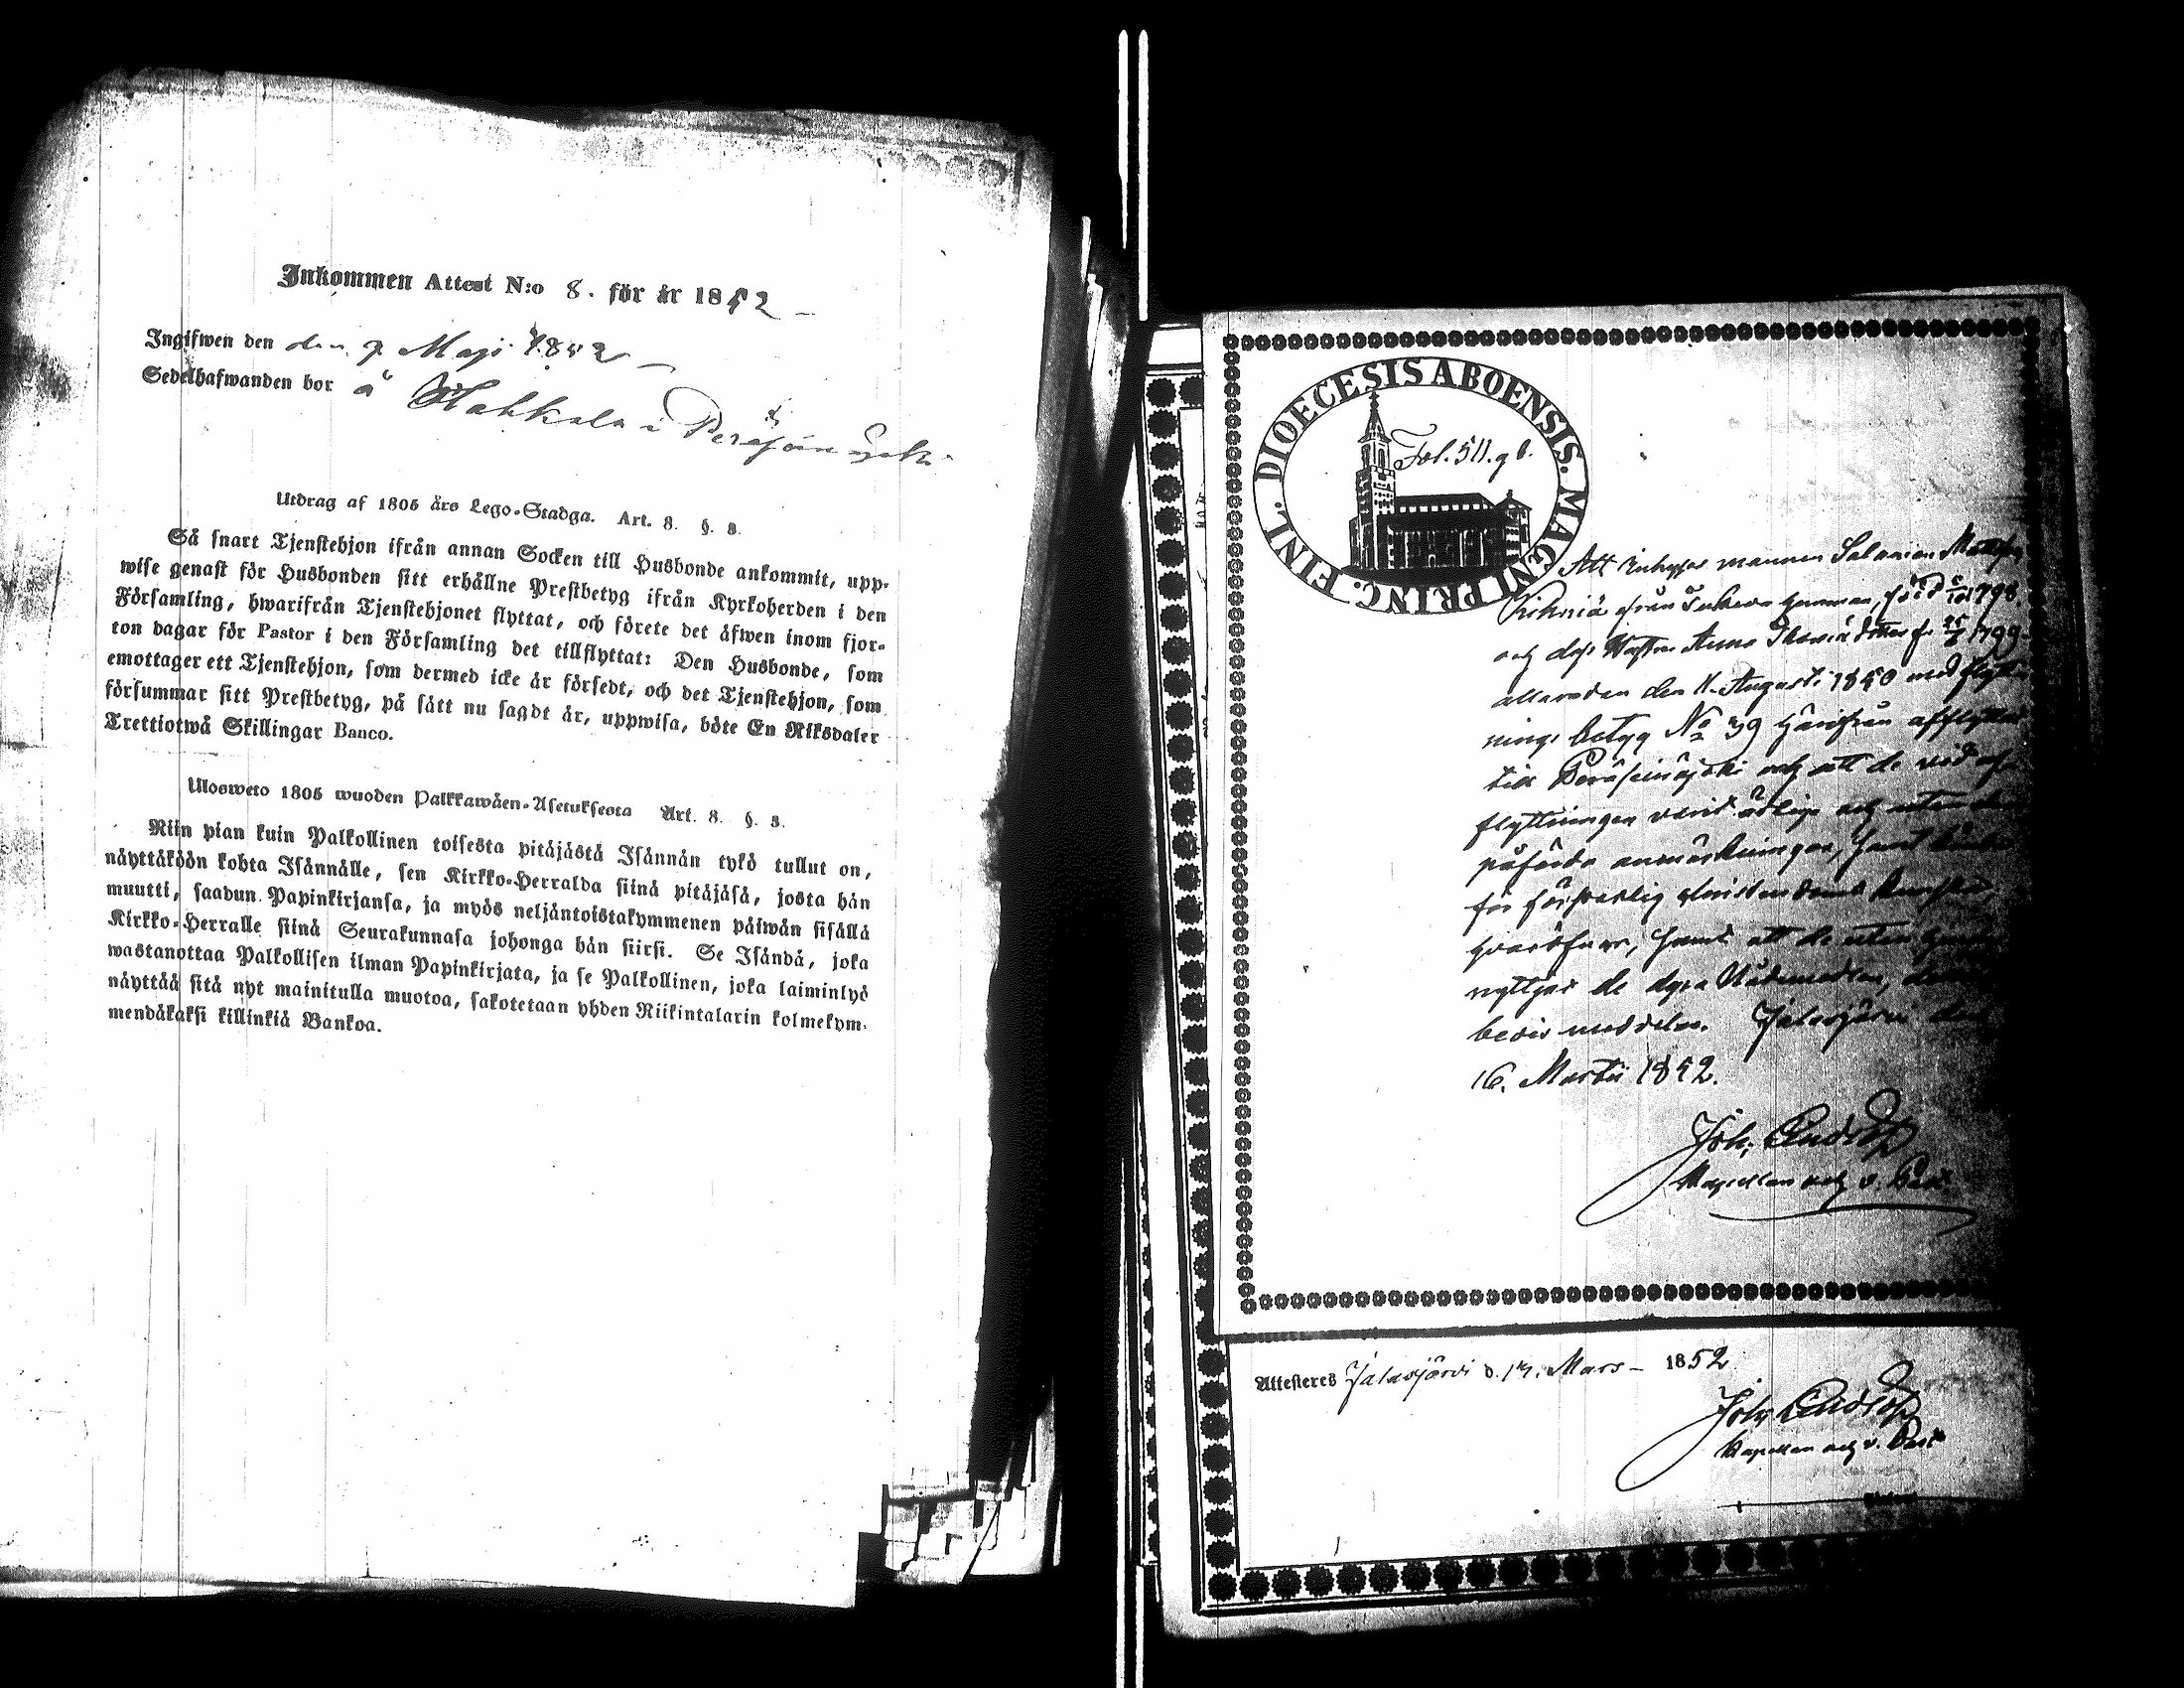 Inkommen Attest N:o 8. för år 1852
Ingifwen den den 9 Maji 1852
Sedelhafwanden bor å Hakkola i Peräseinäjoki
Utdrag af 1805 års Lego-Stadga. Art. 8. §. 3.
Så snart Tjenstehjon ifrån annan Socken till Husbonde ankommit, upp-
wise genast för Husbonden sitt erhållne Prestbetyg ifrån Kyrkoherden i den
Församling, hwarifrån Tjenstehjonet flyttat, och förete det äfwen inom fjor-
ton dagar för Pastor i den Församling det tillflyttat: Den Husbonde, som
emottager ett Tjenstehjon, som dermed icke är försedt, och det Tjenstehjon, som
försummar sitt Prestbetyg, på sätt nu sagdt är, uppwisa, böte En Riksdaler
Trettiotwå Skillingar Banco.
Ulosweto 1805 wuoden Palkkawäen-Asetuksesta Art. 8. §. 3.
Niin pian kuin Palkollinen toisesta pitäjästä Isännän tykö tullut on,
näyttäköön kohta Isännälle, sen Kirkko-Herralda siinä pitäjäsä, josta hän
muutti, saadun Papinkirjansa, ja myös neljäntoistakymmenen päiwän sisällä
Kirkko-Herralle siinä Seurakunnasa johonga hän siirsi. Se Isändä, joka
wastanottaa Palkollisen ilman Papinkirjata, ja se Palkollinen, joka laiminlyö
näyttää sitä nyt mainitulla muotoa, sakotetaan yhden Riikintalarin kolmekym-
mendäkaksi killinkiä Bankoa.
DIOECESIS ABOENSIS. MAGNI PRINC. FINL.
Fol. 511.
Att mannen Salomon
född 1798,
och dess Hustru Anna 1799
allaredan den 11 Augusti 1850 med flytt-
nings betyg No 39 härifrån afflyttat
till Peräseinäjoki och att de vid af-
flyttningen varit ärlige och utan
påförde anmärkningar, samt
för försvarlig christendoms kunskap
samt att de utan
nyttjat de dyra Nådemedlen,
bevis meddelas. Jalasjärvi den
16. Martii 1852.
Joh.
Kapellan och v. Past.
Attesteres Jalasjärvi d. 17. Mars 1852
Joh.
Kapellan och v. Past